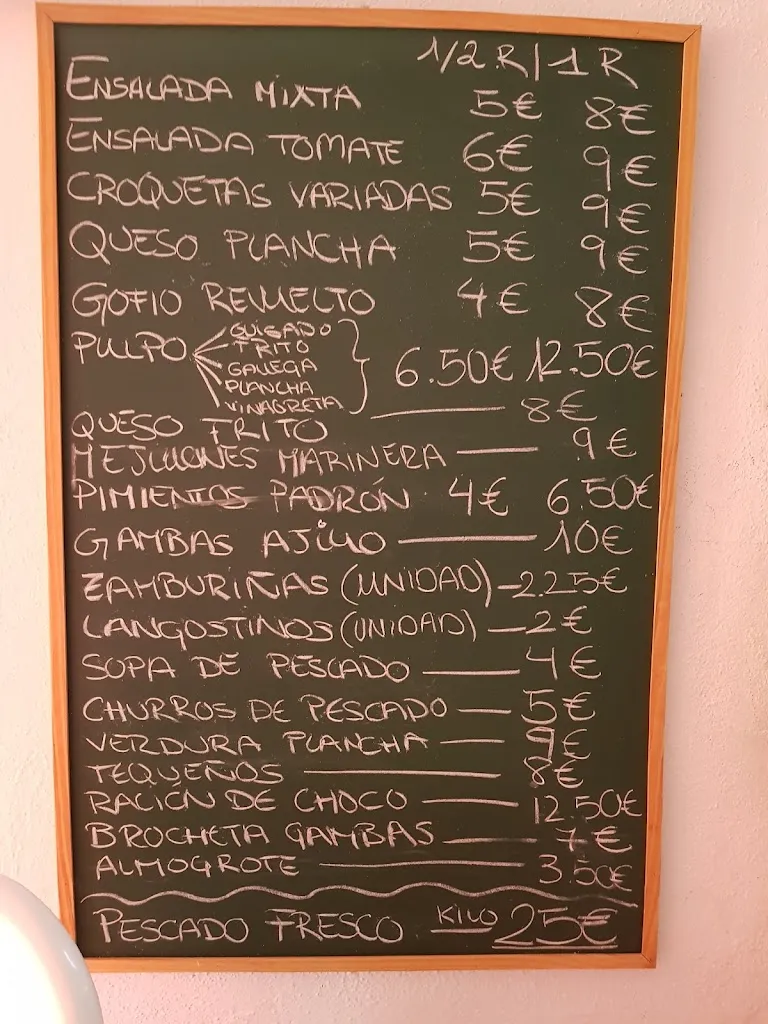 1/2 R | 1 R
ENSALADA MIXTA 5€ 8€
ENSALADA TOMATE 6€ 9€
CROQUETAS VARIADAS 5€ 9€
QUESO PLANCHA 5€ 9€
GOFIO REVUELTO 4€ 8€
PULPO GUISADO
FRITO
GALLEGA
PLANCHA
VINAGRETA
6.50€ 12.50€
QUESO FRITO 8€
MEJILLONES MARINERA 9€
PIMIENTOS PADRÓN 4€ 6.50€
GAMBAS AJILLO 10€
ZAMBURIÑAS (UNIDAD) 2.25€
LANGOSTINOS (UNIDAD) 2€
SOPA DE PESCADO 4€
CHURROS DE PESCADO 5€
VERDURA PLANCHA 9€
TEQUEÑOS 8€
RACIÓN DE CHOCO 12.50€
BROCHETA GAMBAS 7€
ALMOGROTE 3.50€
PESCADO FRESCO KILO 25€